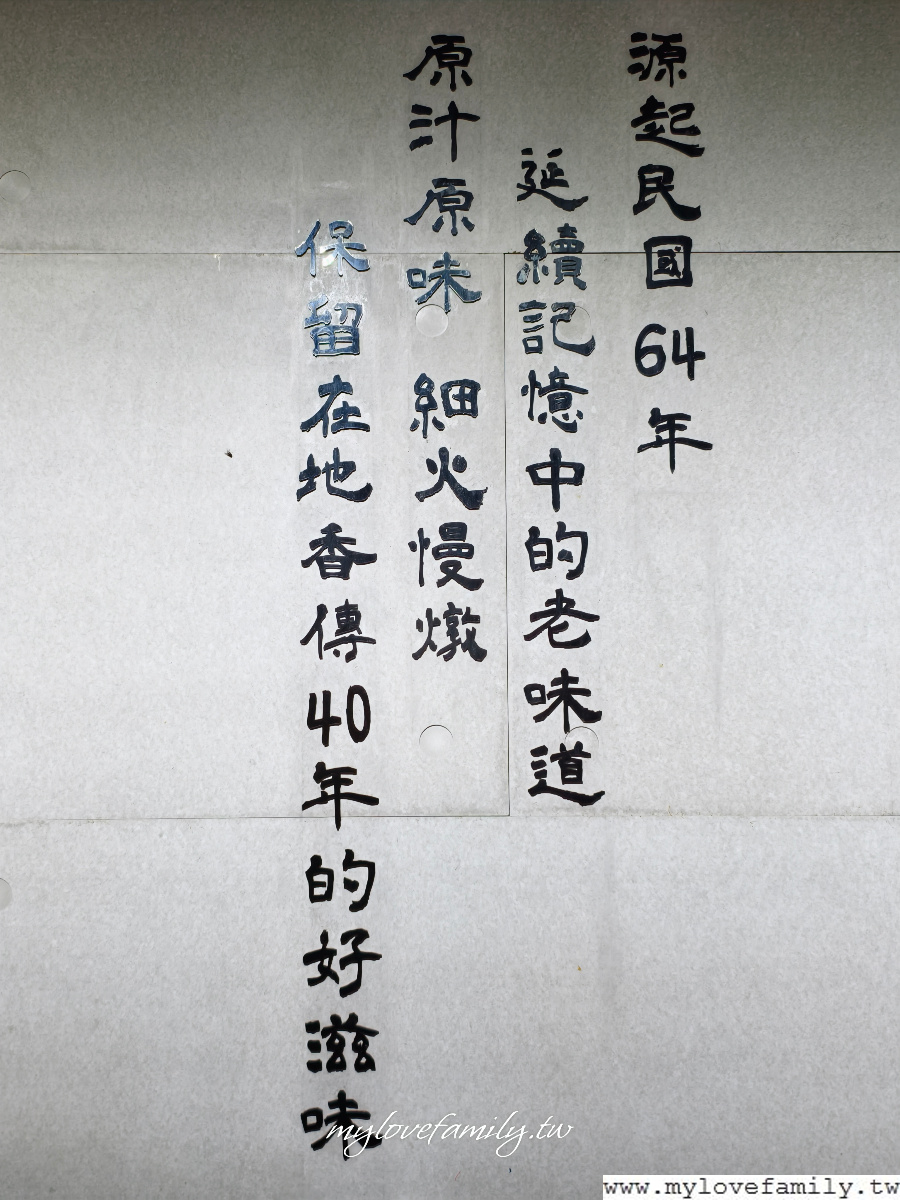 源起民國64年
延續記憶中的老味道
原汁原味 細火慢燉
保留在地香傳40年的好滋味
mylovefamily.tw
www.mylovefamily.tw